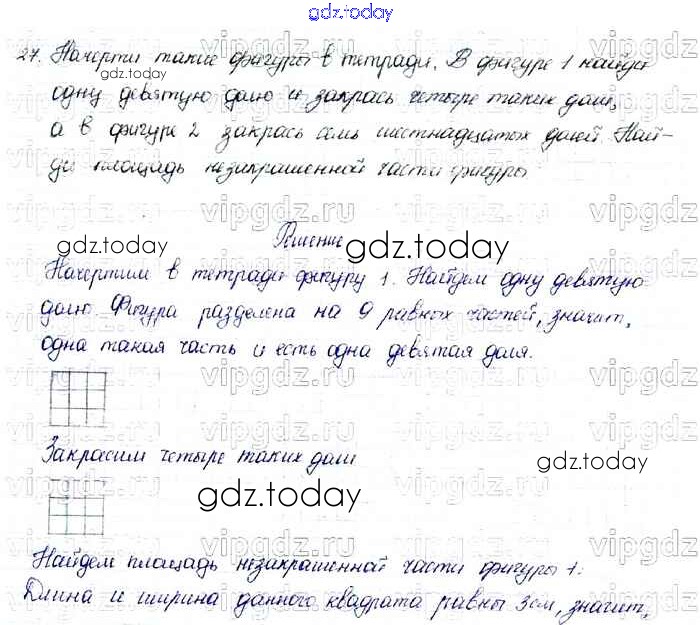 gdz.today
27. Начерти такие фигуры в тетради. В фигуре 1 найди
gdz.today
одну девятую долю и закрась четыре таких доли,
а в фигуре 2 закрась семь шестнадцатых долей. Най-
ди площадь незакрашенной части фигуры
vipgdz.ru vipgdz.ru vipgdz.ru vipgdz.ru
Решение
gdz.today gdz.today
Начертим в тетради фигуру 1. Найдем одну девятую
долю. Фигура разделена на 9 равных частей, значит,
одна такая часть и есть одна девятая доля.
vipgdz.ru vipgdz.ru vipgdz.ru vipgdz.ru
Закрасим четыре таких доли
gdz.today
gdz.today
Найдем площадь незакрашенной части фигуры 1.
Длина и ширина данного квадрата равны 3см, значит,